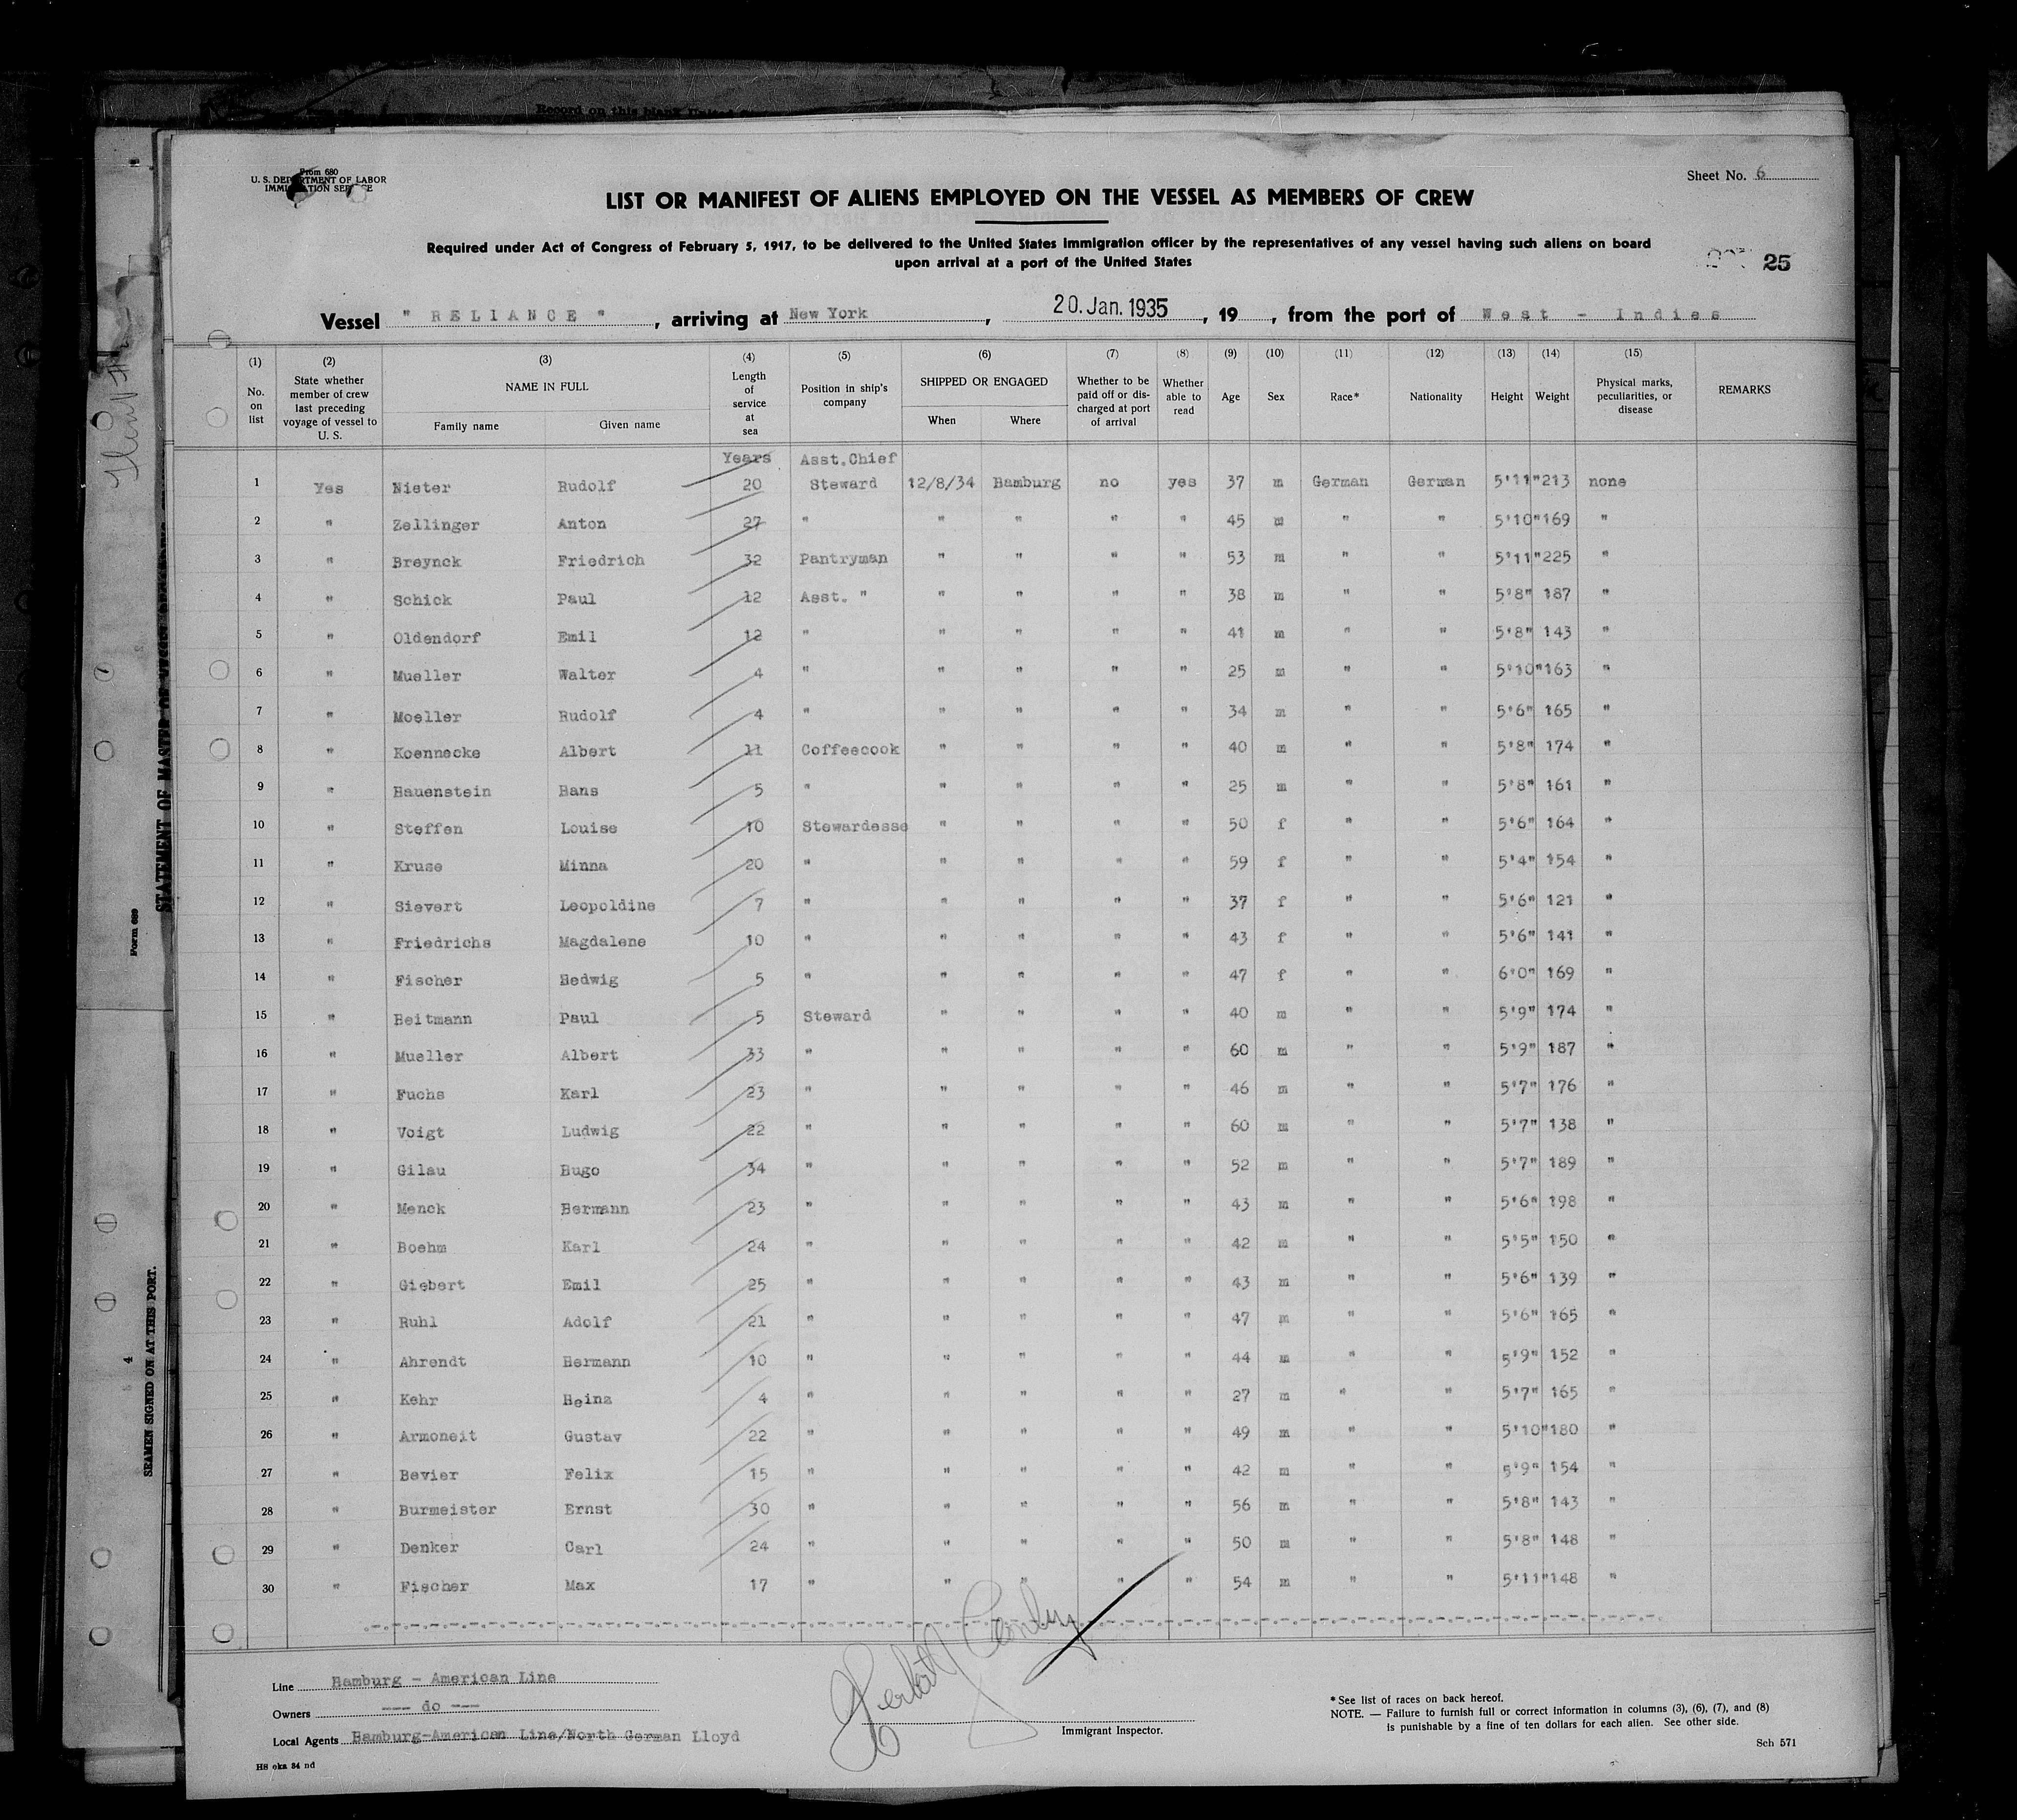 Record on this blank United
From 680
U. S. DEPARTMENT OF LABOR
IMMIGRATION SERVICE
Sheet No. 6
LIST OR MANIFEST OF ALIENS EMPLOYED ON THE VESSEL AS MEMBERS OF CREW
Required under Act of Congress of February 5, 1917, to be delivered to the United States Immigration officer by the representatives of any vessel having such aliens on board
upon arrival at a port of the United States
25
Vessel " RELIANCE " , arriving at New York , 20. Jan. 1935 , 19 , from the port of West - Indies
(1) (2) (3) (4) (5) (6) (7) (8) (9) (10) (11) (12) (13) (14) (15)
No. on list State whether member of crew last preceding voyage of vessel to U. S. NAME IN FULL Family name Given name Length of service at sea Position in ship's company SHIPPED OR ENGAGED When Where Whether to be paid off or discharged at port of arrival Whether able to read Age Sex Race* Nationality Height Weight Physical marks, peculiarities, or disease REMARKS
Years Asst.Chief
1 Yes Nieter Rudolf 20 Steward 12/8/34 Hamburg no yes 37 m German German 5'11" 213 none
2 " Zellinger Anton 27 " " " " " 45 m " " 5'10" 169 "
3 " Breynck Friedrich 32 Pantryman " " " " 53 m " " 5'11" 225 "
4 " Schick Paul 12 Asst. " " " " " 38 m " " 5'8" 187 "
5 " Oldendorf Emil 12 " " " " " 41 m " " 5'8" 143 "
6 " Mueller Walter 4 " " " " " 25 m " " 5'10" 163 "
7 " Moeller Rudolf 4 " " " " " 34 m " " 5'6" 165 "
8 " Koennecke Albert 11 Coffeecook " " " " 40 m " " 5'8" 174 "
9 " Hauenstein Hans 5 " " " " " 25 m " " 5'8" 161 "
10 " Steffen Louise 10 Stewardesse " " " " 50 f " " 5'6" 164 "
11 " Kruse Minna 20 " " " " " 59 f " " 5'4" 154 "
12 " Sievert Leopoldine 7 " " " " " 37 f " " 5'6" 121 "
13 " Friedrichs Magdalene 10 " " " " " 43 f " " 5'6" 141 "
14 " Fischer Hedwig 5 " " " " " 47 f " " 6'0" 169 "
15 " Heitmann Paul 5 Steward " " " " 40 m " " 5'9" 174 "
16 " Mueller Albert 33 " " " " " 60 m " " 5'9" 187 "
17 " Fuchs Karl 23 " " " " " 46 m " " 5'7" 176 "
18 " Voigt Ludwig 22 " " " " " 60 m " " 5'7" 138 "
19 " Gilau Hugo 34 " " " " " 52 m " " 5'7" 189 "
20 " Menck Hermann 23 " " " " " 43 m " " 5'6" 198 "
21 " Boehm Karl 24 " " " " " 42 m " " 5'5" 150 "
22 " Giebert Emil 25 " " " " " 43 m " " 5'6" 139 "
23 " Ruhl Adolf 21 " " " " " 47 m " " 5'6" 165 "
24 " Ahrendt Hermann 10 " " " " " 44 m " " 5'9" 152 "
25 " Kehr Heinz 4 " " " " " 27 m " " 5'7" 165 "
26 " Armoneit Gustav 22 " " " " " 49 m " " 5'10" 180 "
27 " Bevier Felix 15 " " " " " 42 m " " 5'9" 154 "
28 " Burmeister Ernst 30 " " " " " 56 m " " 5'8" 143 "
29 " Denker Carl 24 " " " " " 50 m " " 5'8" 148 "
30 " Fischer Max 17 " " " " " 54 m " " 5'11" 148 "
Line Hamburg - American Line
Owners --- do ---
Local Agents Hamburg-American Line/North German Lloyd
HS oka 34 nd
Immigrant Inspector.
* See list of races on back hereof.
NOTE. — Failure to furnish full or correct information in columns (3), (6), (7), and (8)
is punishable by a fine of ten dollars for each alien. See other side.
Sch 571
STATEMENT OF MASTER OF
Form 689
SEAMEN SIGNED ON AT THIS PORT.
4